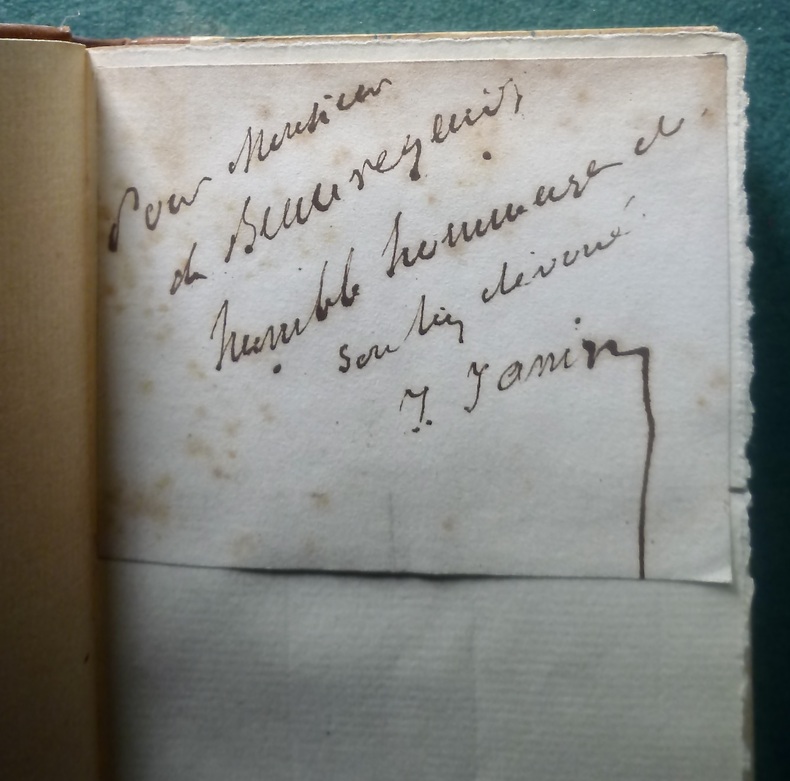 Pour Monsieur
de Beauregard
humble hommage de
son très dévoué
J. Janin